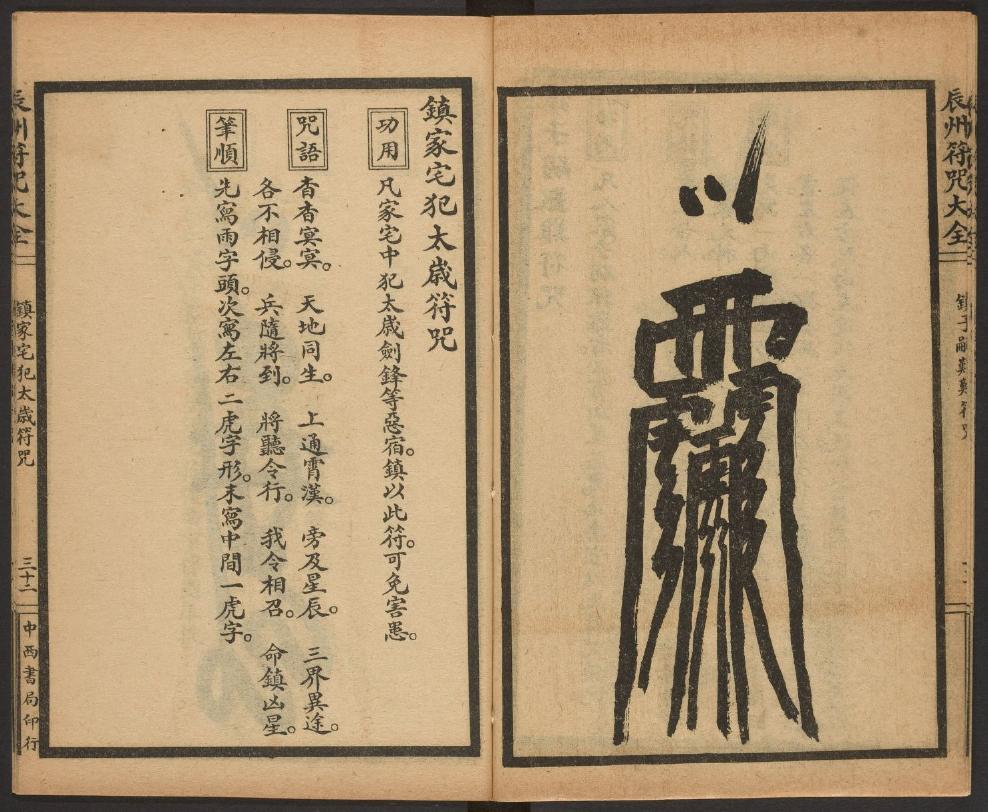 辰州符咒大全
鎮家宅犯太歲符咒
功用
凡家宅中犯太歲劍鋒等惡宿。鎮以此符。可免害患。
咒語
杳杳冥冥。 天地同生。 上通霄漢。 旁及星辰。 三界異途。
各不相侵。 兵隨將到。 將聽令行。 我令相召。 命鎮凶星。
筆順
先寫雨字頭。次寫左右二虎字形。末寫中間一虎字。
辰州符咒大全
鎮家宅犯太歲符咒
三十二
中西書局印行